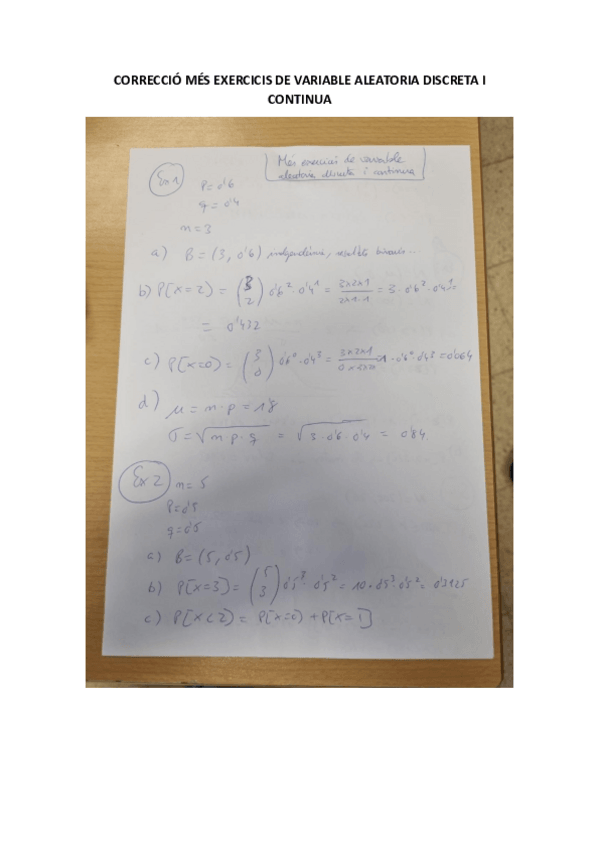 CORRECCIÓ MÉS EXERCICIS DE VARIABLE ALEATORIA DISCRETA I
CONTINUA
Més exercicis de variable
aleatoria discreta i continua
Ex 1
P=0'6
q=0'4
n=3
a) B=(3,0'6) independència, resultats binaris...
b) P[x=2) = (3 2) 0'6²·0'4¹ = 3x2x1/2x1·1 = 3·0'6²·0'4¹=
= 0'432
c) P[x=0) = (3 0) 0'6⁰·0'4³ = 3x2x1 ·0'6⁰·0'4³=0'064
d) μ = n·p = 1'8
σ = √n·p·q = √3·0'6·0'4 = 0'84.
Ex 2 n=5
P=0'5
q=0'5
a) B=(5,0'5)
b) P[x=3]= (5 3) 0'5³·0'5² = 10·0'5³·0'5²= 0'3125
c) P[x<2) = P[x=0) +P[x=1]